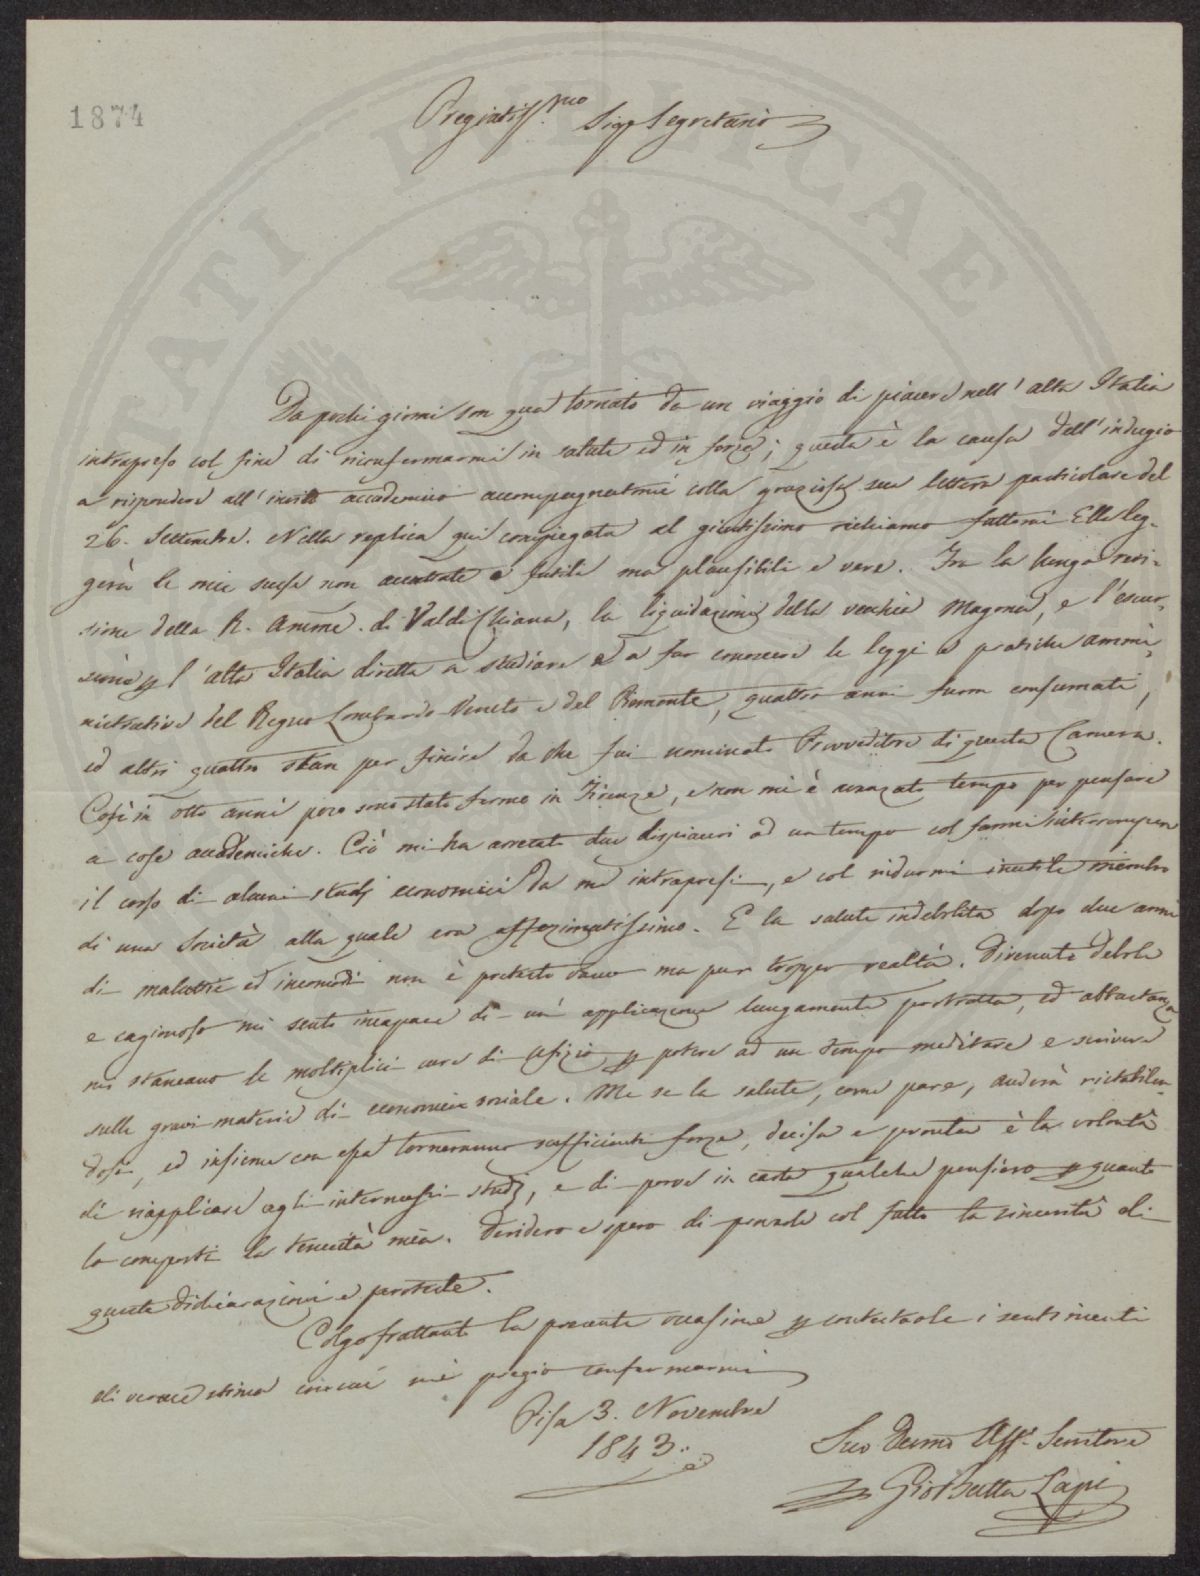 1874
Pregiatiss.mo Sigr Segretario
Da pochi giorni son qua tornato da un viaggio di piacere nell'alta Italia
intrapreso col fine di riconfermarmi in salute ed in forze; questa è la causa dell'indugio
a rispondere all'invito accademico accompagnatomi colla graziosa sua lettera particolare del
26. Settembre. Nella replica qui compiegata al giustissimo richiamo fattomi Ella leg-
gerà le mie scuse non accattate e futili ma plausibili e vere. Fra la lunga revi-
sione della R. Amme. di Val di Chiana, la liquidazione della vecchia Magona, e l'escur-
sione p l'alta Italia diretta a studiare e a far conoscere le leggi e pratiche ammi-
nistrative del Regno Lombardo Veneto e del Piemonte, quattro anni furon consumati,
ed altri quattro stan per finire da che fui nominato Provveditore di questa Camera.
Così in otto anni poco sono stato fermo in Firenze, e non mi è avanzato tempo per pensare
a cose accademiche. Ciò mi ha arrecato due dispiaceri ad un tempo col farmi interrompere
il corso di alcuni studj economici da me intrapresi, e col ridurmi inutile membro
di una Società alla quale era affezionatissimo. E la salute indebolita dopo due anni
di malattie ed incomodi non è pretesto vano ma pur troppo realtà. Divenuto debole
e cagionoso mi sento incapace di un' applicazione lungamente protratta, ed abbastanza
mi stancano le moltiplici cure di ufizio p potere ad un tempo meditare e scrivere
sulle gravi materie di economia sociale. Ma se la salute, come pare, anderà ristabilen-
dosi, ed insieme con essa torneranno sufficienti forze, decisa e pronta è la volontà
di riapplicare agli intermessi studj, e di porre in carta qualche pensiero p quanto
lo comporti la tenuità mia. Desidero e spero di provarle col fatto la sincerità di
queste dichiarazioni e proteste.
Colgo frattanto la presente occasione p contestarle i sentimenti
di verace stima coi quali mi pregio confermarmi
Pisa 3. Novembre
1843.
Suo Devmo Aff. Servitore
Gio Batta Lapi